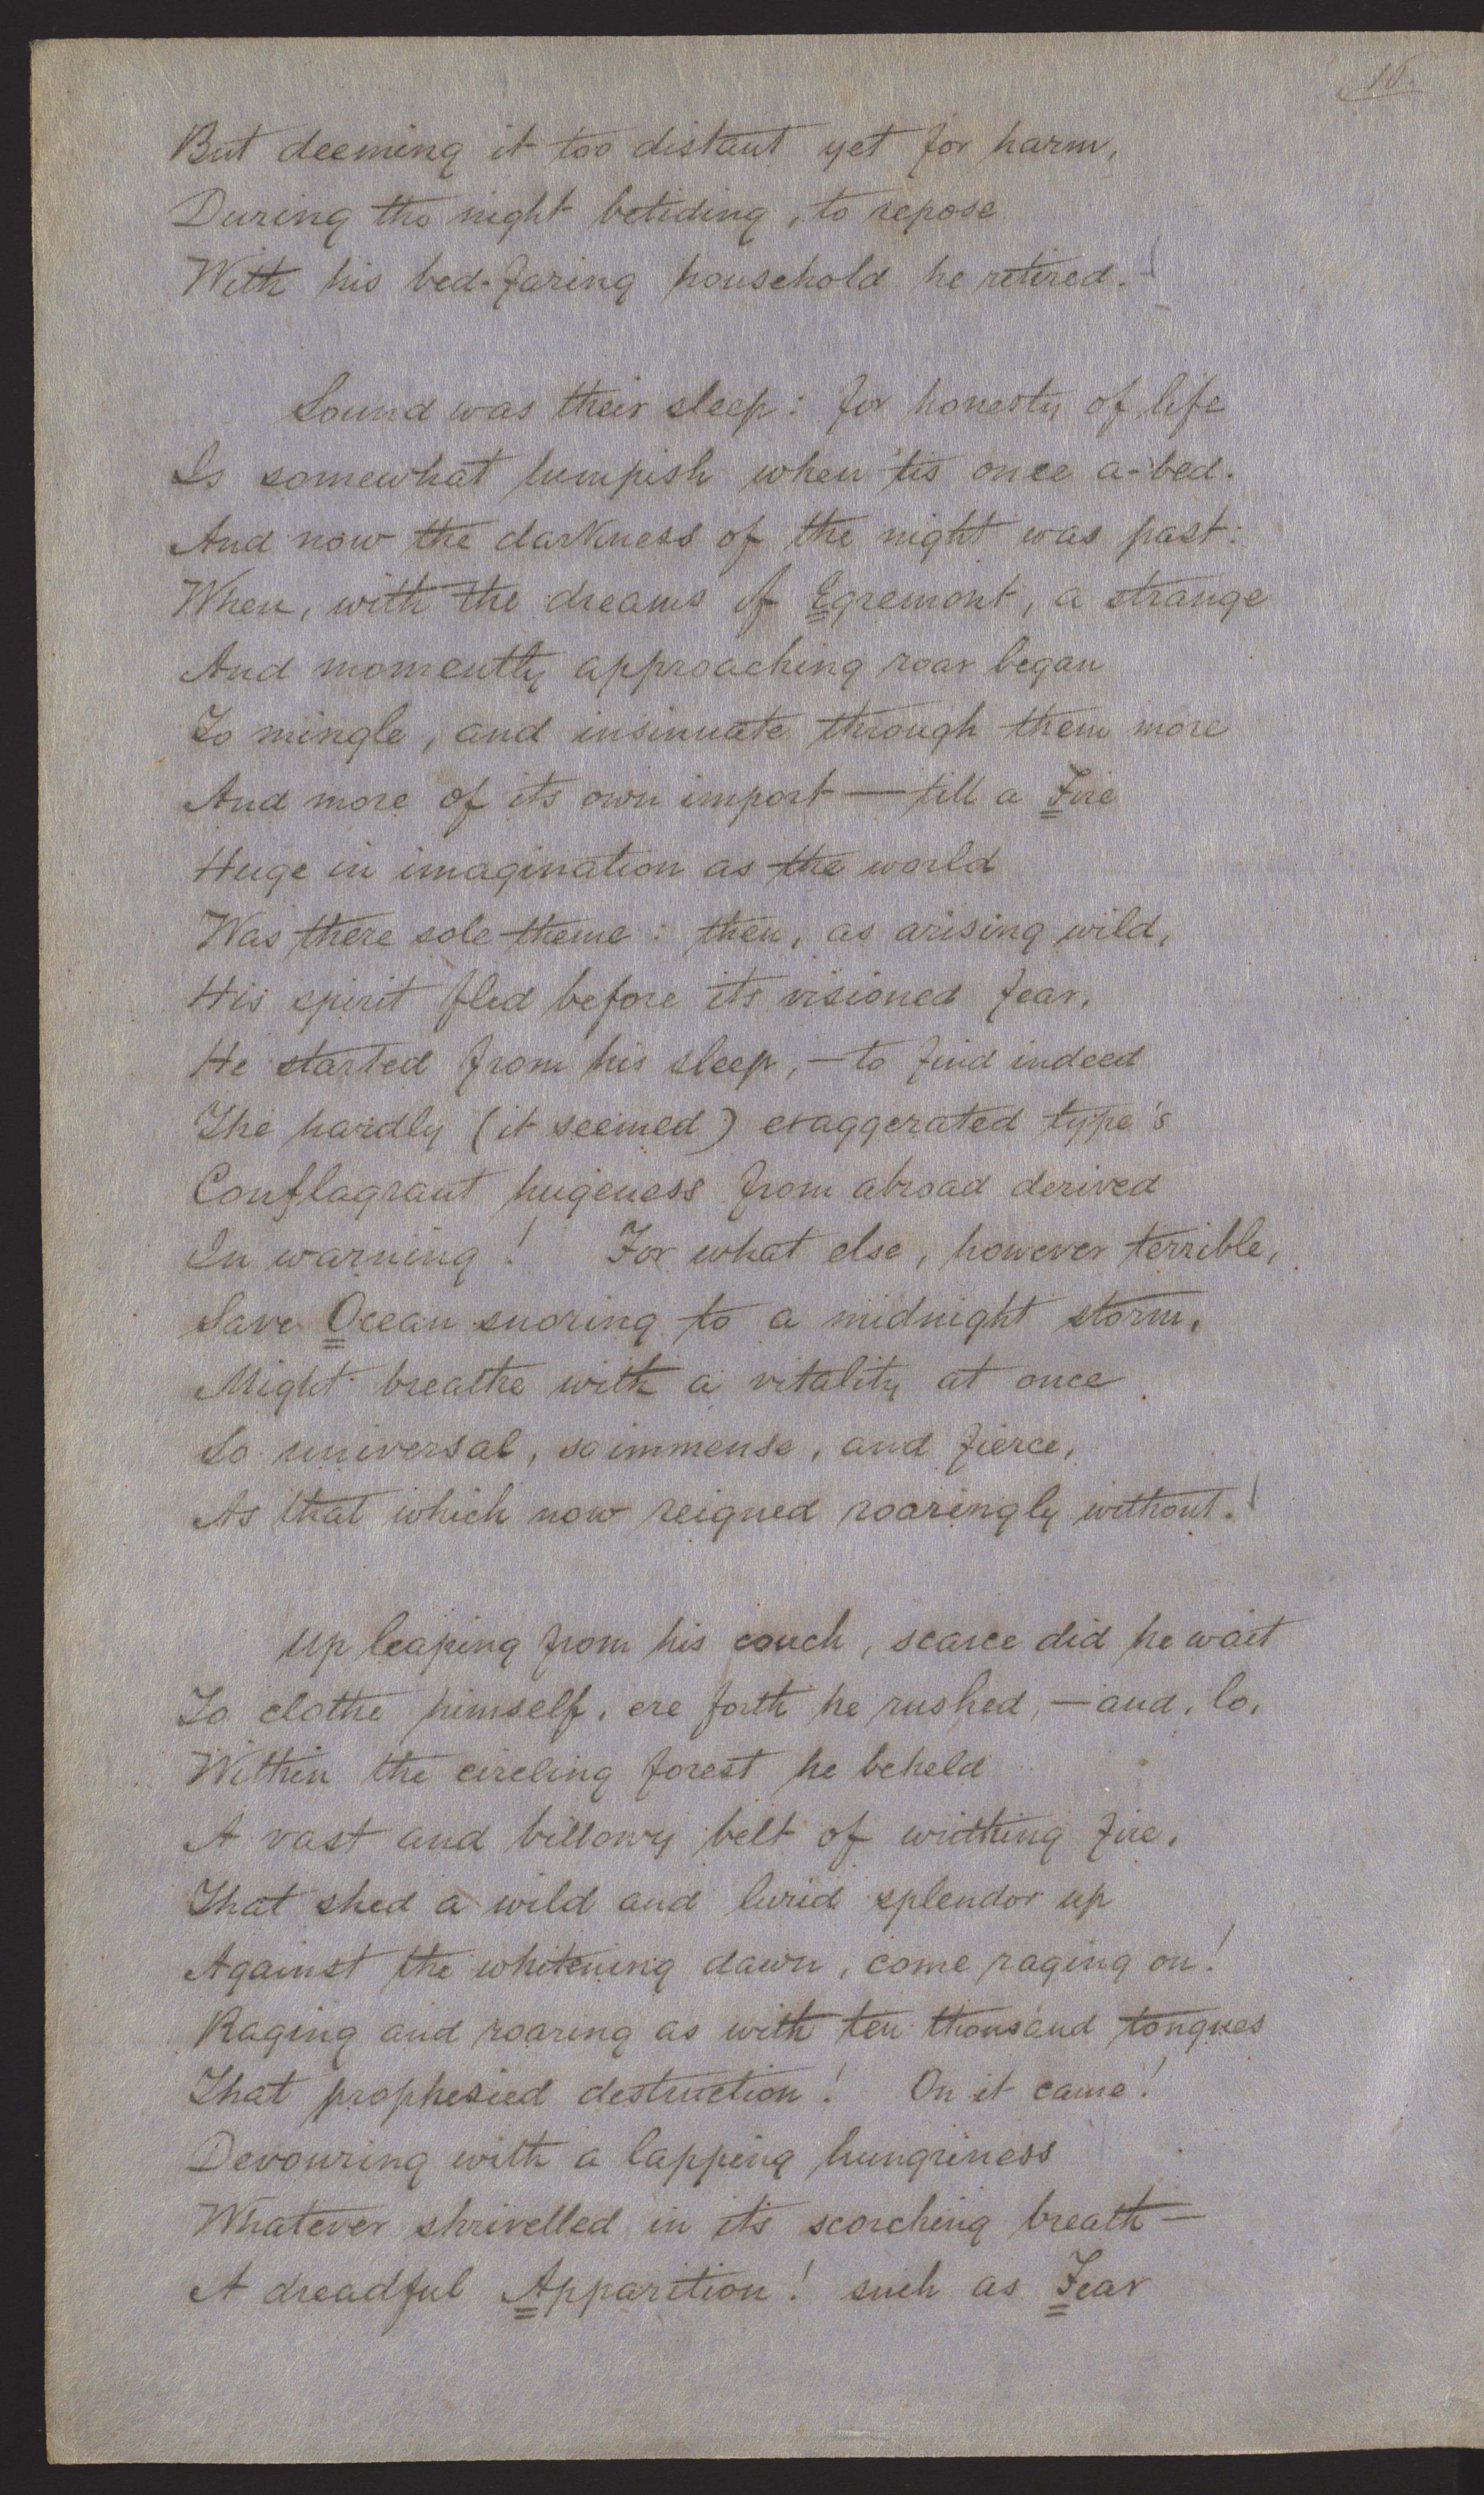 16.
But deeming it too distant yet for harm,
During the night betiding, to repose
With his bed-faring household he retired.
Sound was their sleep: for honesty of life
Is somewhat lumpish when 'tis once a-bed.
And now the darkness of the night was past:
When, with the dreams of Egremont, a strange
And momently approaching roar began
To mingle, and insinuate through them more
And more of its own import — till a Fire
Huge in imagination as the world
Was there sole theme: then, as arising wild,
His spirit fled before its visioned fear,
He started from his sleep, — to find indeed
The hardly (it seemed) exaggerated type's
Conflagrant hugeness from abroad derived
In warning! For what else, however terrible,
Save Ocean snoring to a midnight storm,
Might breathe with a vitality at once
So universal, so immense, and fierce,
As that which now reigned roaringly without.
Up leaping from his couch, scarce did he wait
To clothe himself, ere forth he rushed, — and, lo,
Within the circling forest he beheld
A vast and billowy belt of writhing fire,
That shed a wild and lurid splendor up
Against the whitening dawn, come raging on!
Raging and roaring as with ten thousand tongues
That prophesied destruction! On it came!
Devouring with a lapping hungriness
Whatever shrivelled in its scorching breath —
A dreadful Apparition! such as Fear